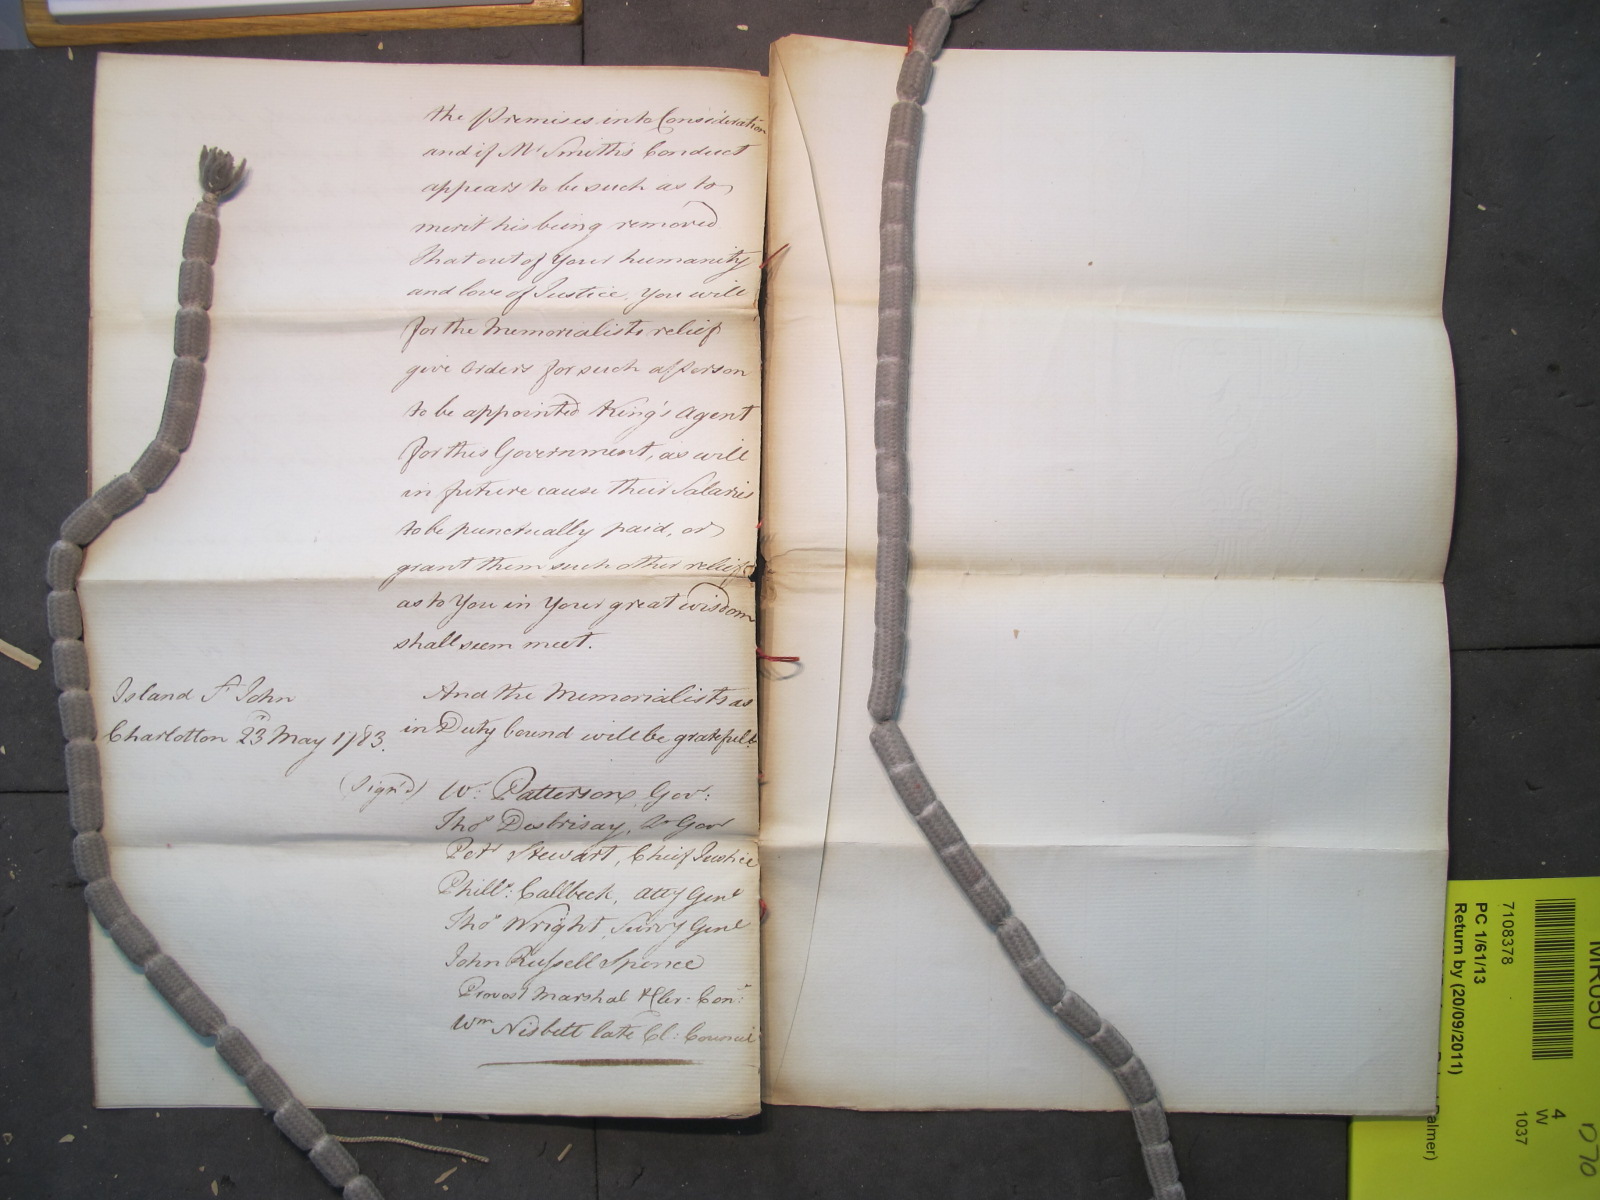 the Premises into Consideration
and if Mr Smith's Conduct
appears to be such as to
merit his being removed
That out of Your humanity
and love of Justice, You will
for the Memorialists relief
give Orders for such a Person
to be appointed King's Agent
for this Government, as will
in future cause their Salaries
to be punctually paid, or
grant them such other relief
as to You in Your great wisdom
shall seem meet.
And the Memorialists as
in Duty bound will be grateful &
Island St John
Charlotton 23d May 1783.
(Sign'd) Wm: Patterson, Govr:
Thos Desbrisay, Lt Govr
Petr Stewart, Chief Justice
Phillp: Callbeck, Atty Genl
Thos Wright, Survy Genl
John Russell Spence
Provost Marshal & Cler: Con:
Wm Nisbett late Cl: Council
7108378
PC 1/61/13
Return by (20/09/2011)
4
W
1037
D70